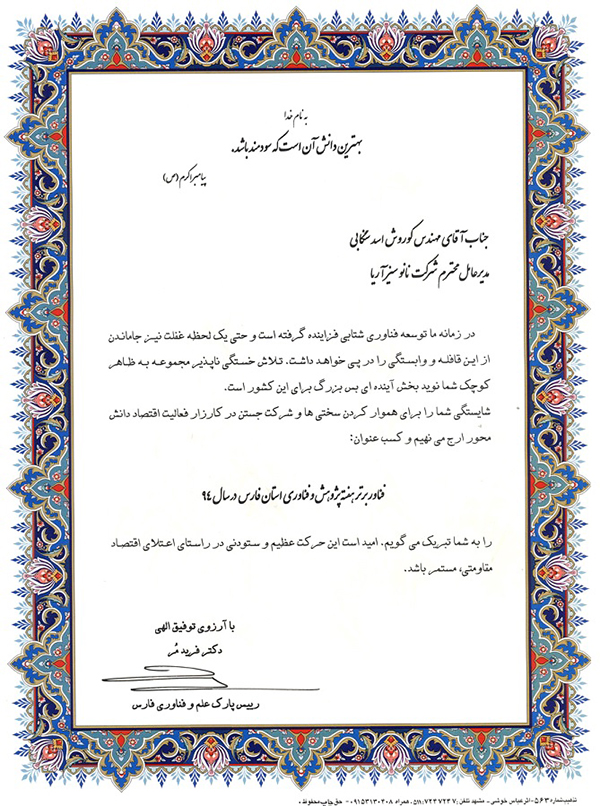 به نام خدا
بهترین دانش آن است که سودمند باشد.
پیامبر اکرم (ص)
جناب آقای مهندس کوروش اسد سنگابی
مدیر عامل محترم شرکت نانو سنیز آریا
در زمانه ما توسعه فناوری شتابی فزاینده گرفته است و حتی یک لحظه غفلت نیز، جاماندن
از این قافله و وابستگی را در پی خواهد داشت. تلاش خستگی ناپذیر مجموعه به ظاهر
کوچک شما نوید بخش آینده ای بس بزرگ برای این کشور است.
شایستگی شما را برای هموار کردن سختی ها و شرکت جستن در کارزار فعالیت اقتصاد دانش
محور ارج می نهیم و کسب عنوان:
فناور برتر هفته پژوهش و فناوری استان فارس در سال ۹۴
را به شما تبریک می گویم. امید است این حرکت عظیم و ستودنی در راستای اعتلای اقتصاد
مقاومتی، مستمر باشد.
با آرزوی توفیق الهی
دکتر فرید مُر
رییس پارک علم و فناوری فارس
شماره ۵۶۳ اثر عباس خوشی - مشهد تلفن: ۷۲۴۷۲۴۷-۵۱۱ همراه ۰۹۱۵۳۱۳۰۴۰۸ - حق چاپ محفوظ